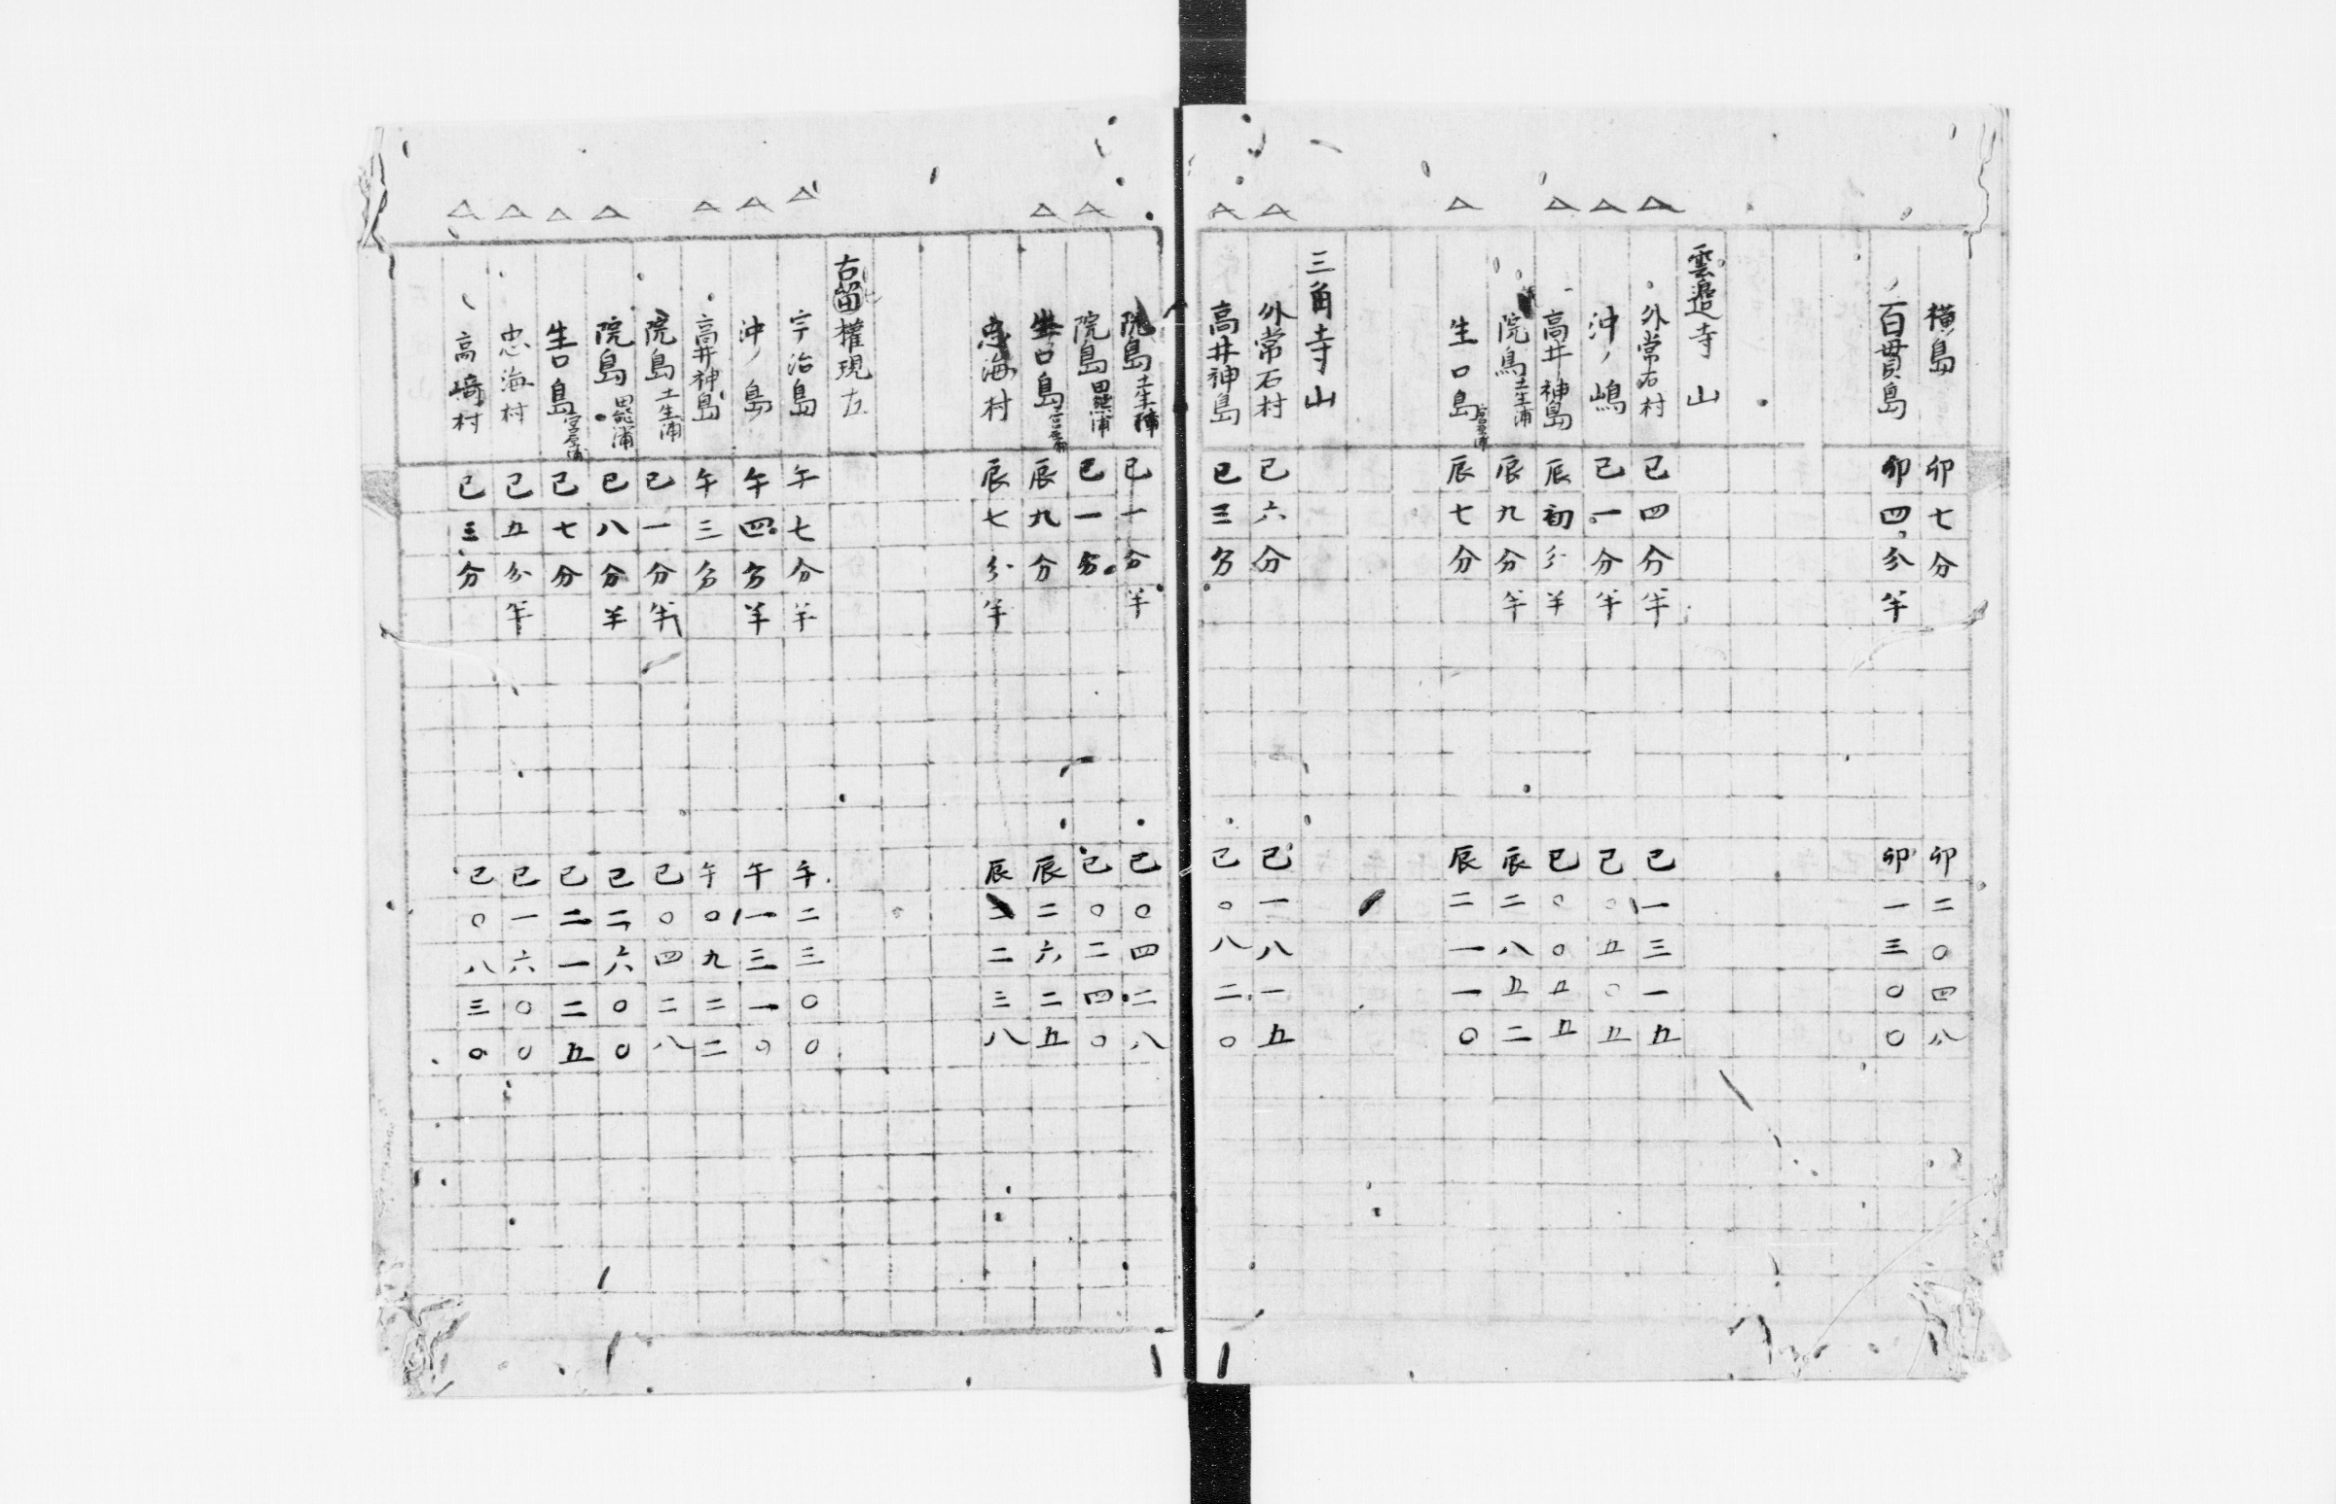 横島 卯七分 卯二〇四八
百貫島 卯四分半 卯一三〇〇
雲邉寺山
△ 外常石村 巳四分半 巳一三一五
△ 沖ノ嶋 巳一分半 巳〇五〇五
△ 高井神島 辰初分半 巳〇〇五五
院島土生浦 辰九分半 辰二八五二
△ 生口島 辰七分 辰二一一〇
三角寺山
△ 外常石村 巳六分 巳一八一五
△ 高井神島 巳三分 巳〇八二〇
院島土生浦 巳一分半 巳〇四二八
△ 院島田熊浦 巳一分 巳〇二四〇
△ 生口島 辰九分 辰二六二五
忠海村 辰七分半 辰二二三八
右
權現
△ 宇治島 午七分半 午二三〇〇
△ 沖ノ島 午四分半 午一三一〇
△ 高井神島 午三分 午〇九二二
院島土生浦 巳一分半 巳〇四二八
△ 院島田熊浦 巳八分半 巳二六〇〇
△ 生口島 巳七分 巳二一二五
△ 忠海村 巳五分半 巳一六〇〇
△ 高﨑村 巳三分 巳〇八三〇